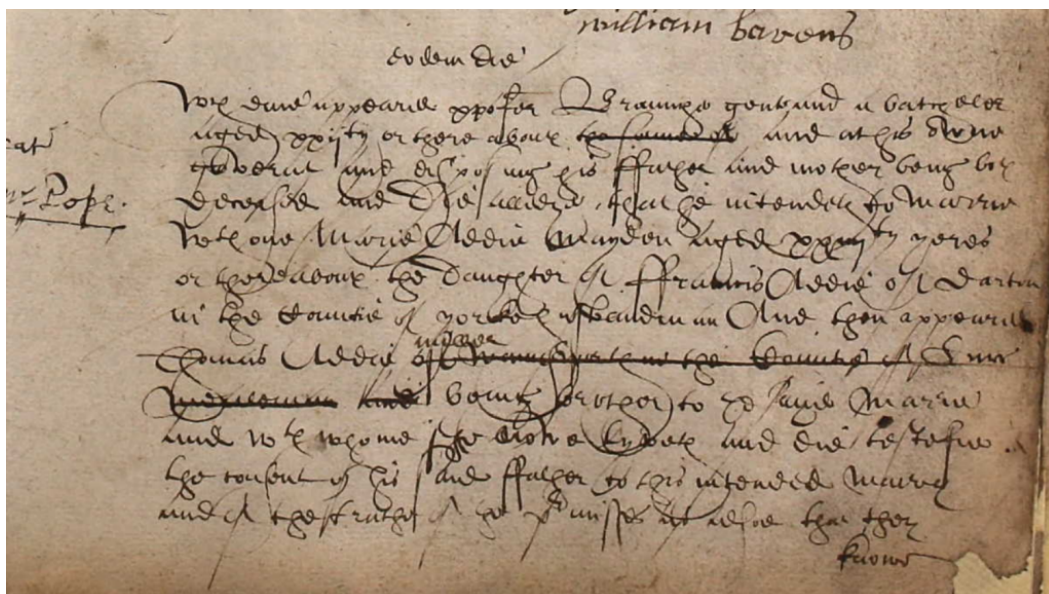 william bavens
eodem die
wch daie appeared xpofer Bramham gent and a batcheler
aged xxijty or there about the and at his owne
goverm and disposing his ffather and mother being both
at
deceased and did alledge that he intendeth to Marrie
mr Pope.
wth one Marie Addie Mayden aged xxiiijty yeres
or thereabout the daughter of ffrancis Addie of Darton
in the Countie of yorke husbandman And then appeared
Thomas Addie of in the Countie of
miller
and being brother to ye said Marie
and wth whome she now lyveth and did testefie
the consent of his said ffather to this intended marriage
and of the truthe of the premisses as alsoe that they
knowe